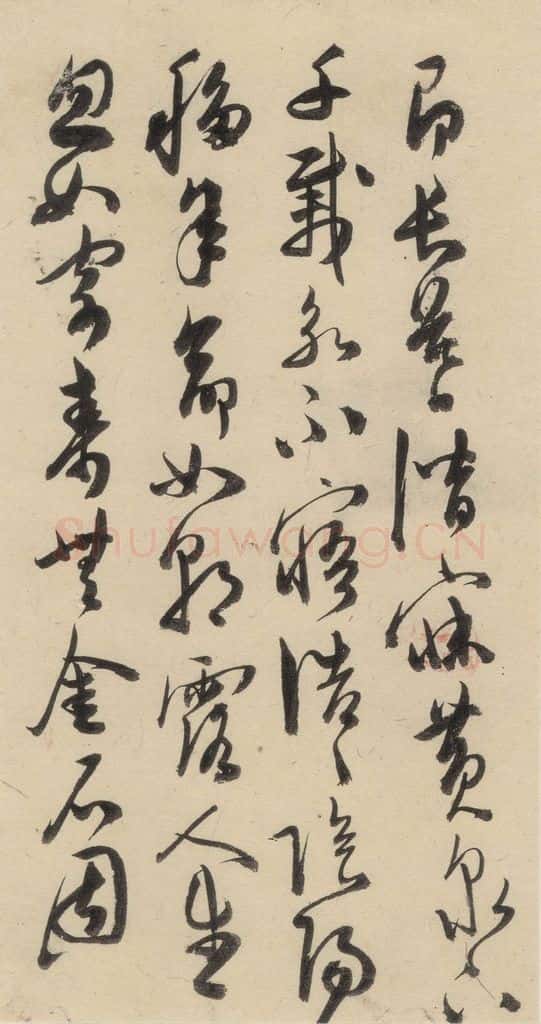 即長暮潛寐黃泉下
千載永不寤浩〻陰陽
移年命如朝露人生
忽如寄壽無金石固
Shufawang.CN